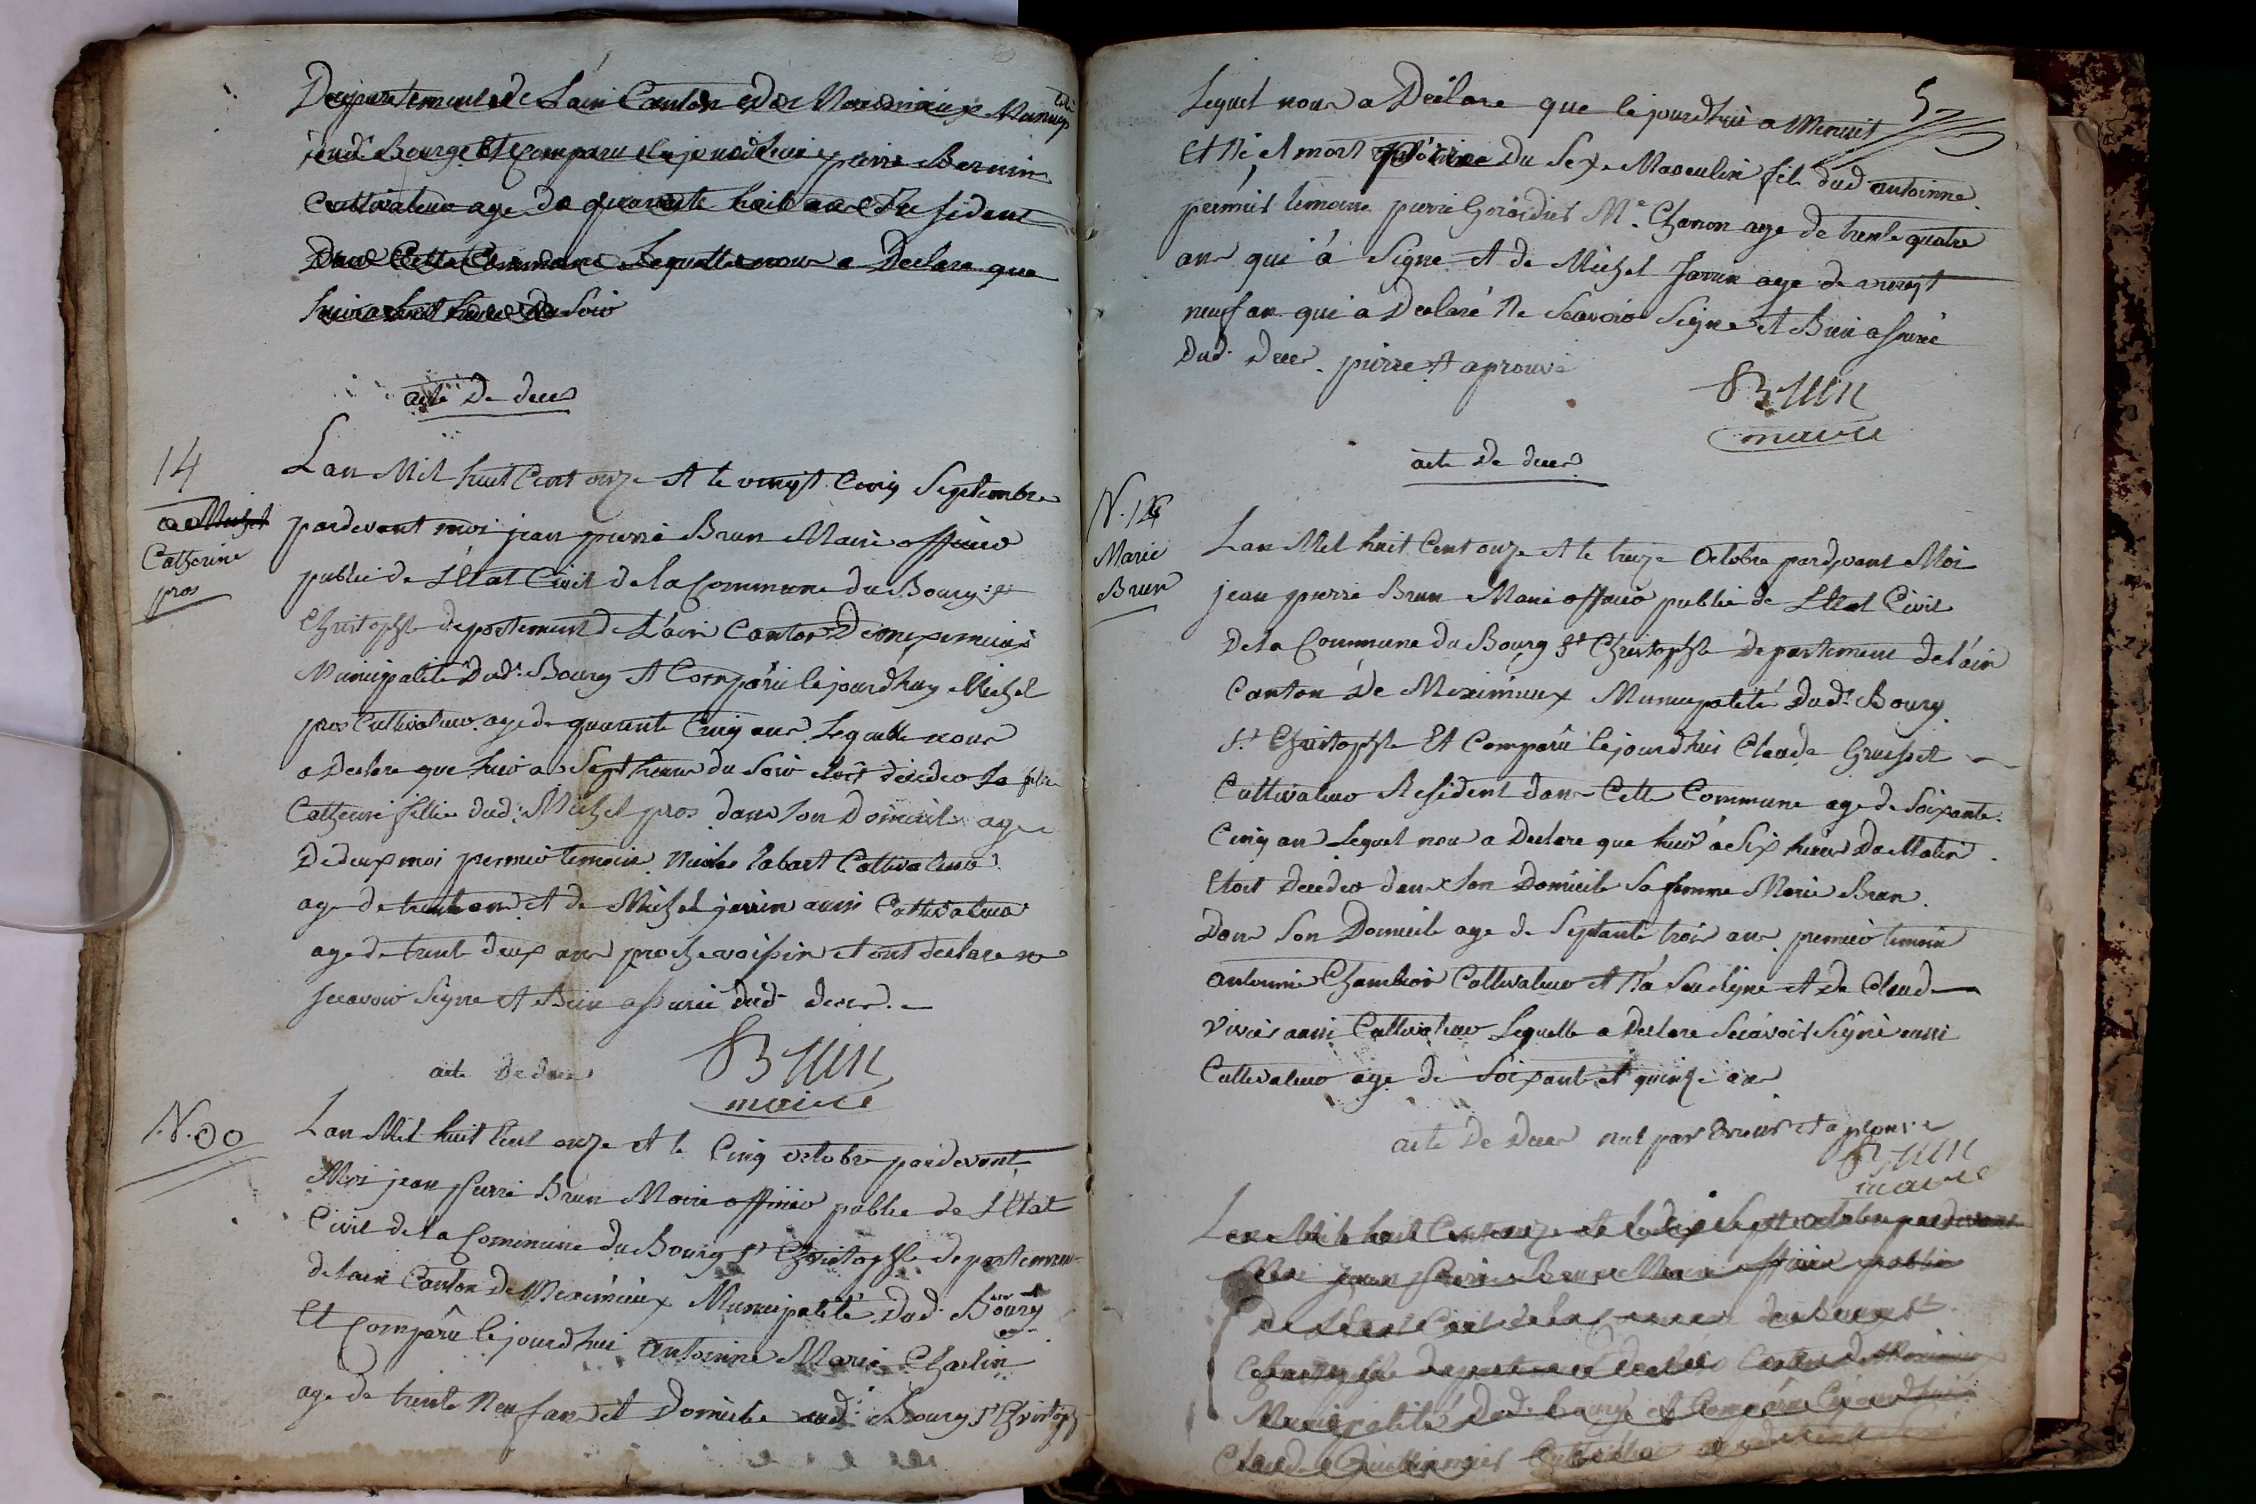 Departement de Lain Canton de Meximieux Municip
dud. Bourg Et Comparu le jourdhui pierre
Cultivateur age de quarante huit ans Resident
Dans Cette Commune Lequelle nous a Declare que
huit heure du Soir
acte De deces
14
Catherine
pros
Lan Mil huit Cent onze et le vingt Cinq Septembre
pardevant moi jean pierre Brun Maire officier
public de L'Etat Civil de la Commune du Bourg St
Christophle departement de L'ain Canton De meximieux
Municipalité Dud. Bourg Et Comparu le jourdhuy Michel
pros Cultivateur age de quarante Cinq ans Lequelle nous
a Declare que hier a Sept heure du Soir etoit decedeo Sa fille
Catherine fillie dud. Michel pros dans Son Domicile age
De deux moi permier temoin Nicolas labart Cultivateur
age de trente ans et de Michel jarrin aussi Cultivateur
age de trente deux ans proche voissin et ont declare ne
Scavoir Signe Et Bien assurie dud. deces
Brun
maire
acte De deces
N. 00
Lan Mil huit Cent onze et le Cinq octobre pardevant
Moi jean pierre Brun Maire officier public de L'Etat
Civil de la Commune du Bourg St Christophle departement
de lain Canton De Meximieux Municipalité Dud. Bourg
Et Comparu le jourdhui antoinne Marie Charlin
age de trente Neuf ans et Domicile aud. Bourg St Christoph
5
Lequel nous a Déclare que le jourdhui a Minuit
Et né et mort du Sexe Masculin fils dud antoinne
permier temoins pierre Me. Charon age de trente quatre
ans qui a Signe et de Michel Jarrin age de vingt
neuf an qui a Declaré Ne Scavoir Signe et Bien assurié
Dud. Deces pierre et aprouvé
Brun
maire
acte De deces
N. 15
Marie
Brun
Lan Mil huit Cent onze et le treize Octobre pardevant Moi
jean pierre Brun Maire officier public de L'Etat Civil
De la Commune du Bourg St Christophle Departement de l'ain
Canton De Meximieux Municipalité Dud. Bourg
St Christophle Et Comparu le jourdhui Claude
Cultivateur Resident dans Cette Commune age de Soixante
Cinq ans Lequel nous a Declare que hier a Six heures Du Matin
Etoit Decedeo dans Son Domicile Sa femme Marie Brun
Dans Son Domicile age de Septante trois ans premier temoin
antoinne Cultivateur et de Claude
Vivier aussi Cultivateur Lequelle a Declare Scavoir Signé aussi
Cultivateur age de Soixante et quinze ans
acte De Deces nul par Erreur et aprouvé
Brun
maire
Lan Mil huit Cent onze et le dix Sept octobre pardevant
Moi jean pierre Brun Maire officier public
De L'Etat Civil de la Commune du Bourg St
Christophle departement de l'ain Canton de Meximieux
Municipalité Dud. Bourg et Comparu le jourdhui
Claude Cultivateur